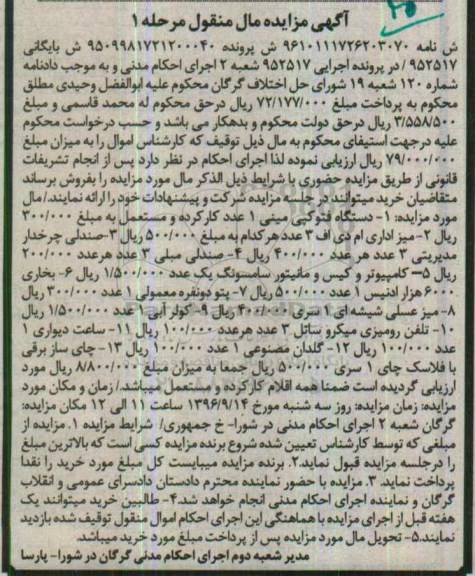 ۲۵
آگهی مزایده مال منقول مرحله ۱
ش نامه ۹۶۱۰۱۱۱۷۲۶۲۰۳۰۷۰ ش پرونده ۹۵۰۹۹۸۱۷۲۱۲۰۰۰۴۰ ش بایگانی
۹۵۲۵۱۷ / در پرونده اجرایی ۹۵۲۵۱۷ شعبه ۲ اجرای احکام مدنی و به موجب دادنامه
شماره ۱۲۰ شعبه ۱۹ شورای حل اختلاف گرگان محکوم علیه ابوالفضل وحیدی مطلق
محکوم به پرداخت مبلغ ۷۲/۱۷۷/۰۰۰ ریال درحق محکوم له محمد قاسمی و مبلغ
۳/۵۵۸/۵۰۰ ریال درحق دولت محکوم و بدهکار می باشد و حسب درخواست محکوم
علیه درجهت استیفای محکوم به مال ذیل توقیف که کارشناس اموال را به میزان مبلغ
۷۹/۰۰۰/۰۰۰ ریال ارزیابی نموده لذا اجرای احکام در نظر دارد پس از انجام تشریفات
قانونی از طریق مزایده حضوری با شرایط ذیل الذکر مال مورد مزایده را بفروش برساند
متقاضیان خرید میتوانند در جلسه مزایده شرکت و پیشنهادات خود را ارائه نمایند./مال
مورد مزایده: ۱- دستگاه فتوکپی مینی ۱ عدد کارکرده و مستعمل به مبلغ ۳۰۰/۰۰۰
ریال ۲-میز اداری ام دی اف ۳ عدد هرکدام به مبلغ ۵۰۰/۰۰۰ ریال ۳-صندلی چرخدار
مدیریتی ۳ عدد هر عدد ۴۰۰/۰۰۰ ریال ۴- صندلی مبلی ۳ عدد هرعدد ۲۰۰/۰۰۰
ریال ۵- کامپیوتر و کیس و مانیتور سامسونگ یک عدد ۱/۵۰۰/۰۰۰ ریال ۶- بخاری
۶۰۰۰ هزار ادنیس ۱ عدد ۵۰۰/۰۰۰ ریال ۷- پتو دونفره معمولی ۱ عدد ۳۰۰/۰۰۰ ریال
۸- میز عسلی شیشه ای ۱ سری ۴۰۰/۰۰۰ ریال ۹- کولر آبی ۱ عدد ۱/۵۰۰/۰۰۰ ریال
۱۰- تلفن رومیزی میکرو ساتل ۳ عدد هرعدد ۱۰۰/۰۰۰ ریال ۱۱- ساعت دیواری ۱
عدد ۱۰۰/۰۰۰ ریال ۱۲- گلدان مصنوعی ۱ عدد ۱۰۰/۰۰۰ ریال ۱۳- چای ساز برقی
با فلاسک چای ۱ سری ۵۰۰/۰۰۰ ریال جمعا به میزان مبلغ ۸/۸۰۰/۰۰۰ ریال مورد
ارزیابی گردیده است ضمنا همه اقلام کارکرده و مستعمل میباشد./ زمان و مکان مورد
مزایده: زمان مزایده: روز سه شنبه مورخ ۱۳۹۶/۹/۱۴ ساعت ۱۱ الی ۱۲ مکان مزایده:
گرگان شعبه ۲ اجرای احکام مدنی در شورا- خ جمهوری/ شرایط مزایده ۱. مزایده از
مبلغی که توسط کارشناس تعیین شده شروع برنده مزایده کسی است که بالاترین مبلغ
را درجلسه مزایده قبول نماید.۲. برنده مزایده میبایست کل مبلغ مورد خرید را نقدا
پرداخت نماید. ۳. مزایده با حضور نماینده محترم دادستان دادسرای عمومی و انقلاب
گرگان و نماینده اجرای احکام مدنی انجام خواهد شد.۴- طالبین خرید میتوانند یک
هفته قبل از اجرای مزایده با هماهنگی این اجرای احکام اموال منقول توقیف شده بازدید
نمایند.۵- تحویل مال مورد مزایده پس از پرداخت مبلغ مورد خرید میباشد.
مدیر شعبه دوم اجرای احکام مدنی گرگان در شورا- پارسا